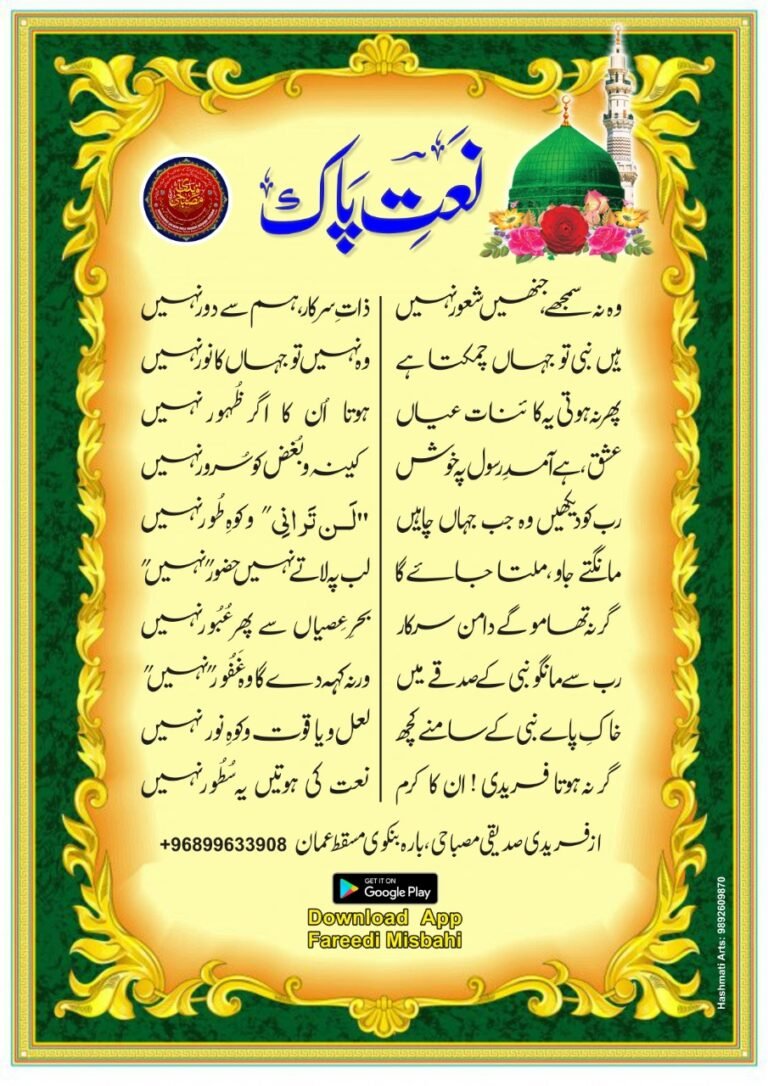 نعتِ پاک
وہ نہ سمجھے، جنھیں شعور نہیں
ذاتِ سرکار، ہم سے دور نہیں
ہیں نبی تو جہاں چمکتا ہے
وہ نہیں تو جہاں کا نور نہیں
پھر نہ ہوتی یہ کائنات عیاں
ہوتا اُن کا اگر ظُہور نہیں
عشق، ہے آمدِ رسول پہ خوش
کینہ و بُغض کو سُرور نہیں
رب کو دیکھیں وہ جب جہاں چاہیں
"لَن تَرانِی" و کوہِ طُور نہیں
مانگتے جاو، ملتا جائے گا
لب پہ لاتے نہیں حضور "نہیں"
گر نہ تھاموگے دامنِ سرکار
بحرِ عصیاں سے پھر عُبُور نہیں
رب سے مانگو نبی کے صدقے میں
ورنہ کہہ دے گا وہ غَفُور "نہیں"
خاکِ پاے نبی کے سامنے کچھ
لعل و یاقوت و کوہِ نور نہیں
گر نہ ہوتا فریدی! ان کا کرم
نعت کی ہوتیں یہ سُطُور نہیں
از فریدی صدیقی مصباحی، بارہ بنکوی مسقط عمان +96899633908
GET IT ON
Google Play
Download App
Fareedi Misbahi
Hashmati Arts: 9892609870